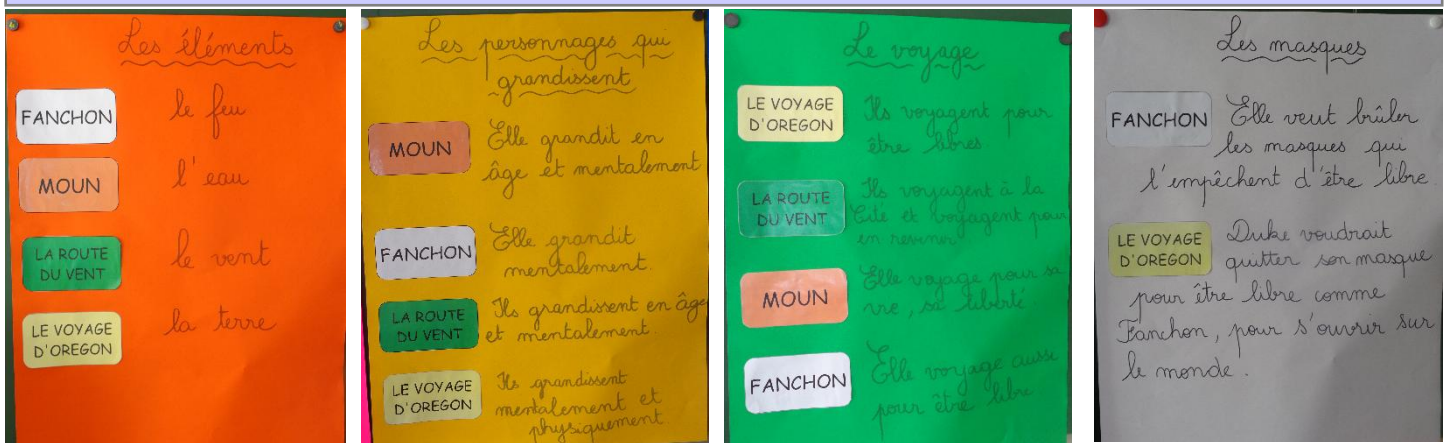 Les éléments
FANCHON le feu
MOUN l'eau
LA ROUTE
DU VENT le vent
LE VOYAGE
D'OREGON la terre
Les personnages qui
grandissent
MOUN Elle grandit en
âge et mentalement
FANCHON Elle grandit
mentalement.
LA ROUTE
DU VENT Ils grandissent en âge
et mentalement.
LE VOYAGE
D'OREGON Ils grandissent
mentalement et
physiquement.
Le voyage
LE VOYAGE
D'OREGON Ils voyagent pour
être libres
LA ROUTE
DU VENT Ils voyagent à la
Cité et voyagent pour
en revenir
MOUN Elle voyage pour sa
vie, sa liberté
FANCHON Elle voyage aussi
pour être libre
Les masques
FANCHON Elle veut brûler
les masques qui
l'empêchent d'être libre.
LE VOYAGE
D'OREGON Duke voudrait
quitter son masque
pour être libre comme
Fanchon, pour s'ouvrir sur
le monde.